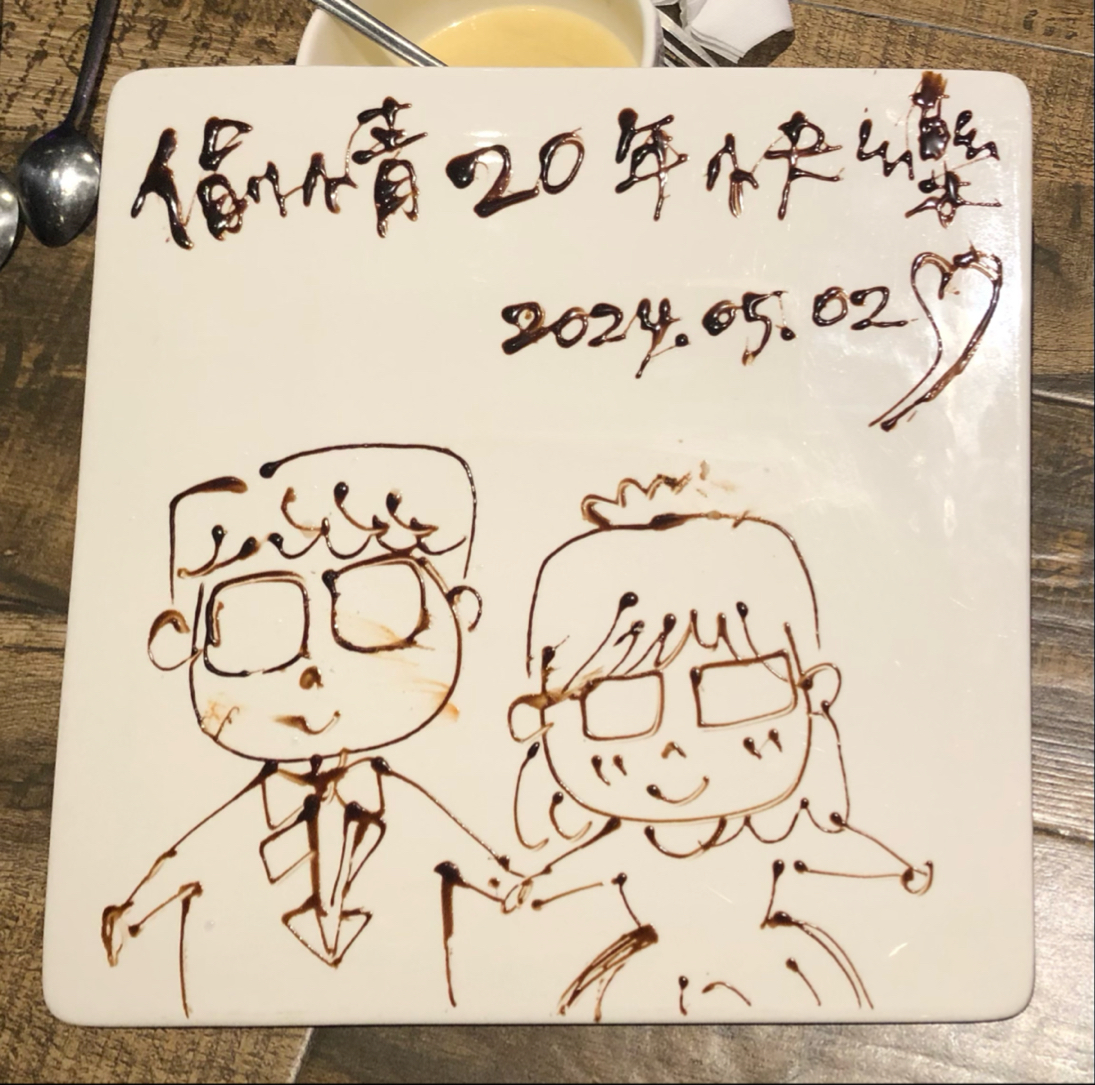 偷情20年快樂
2024.05.02